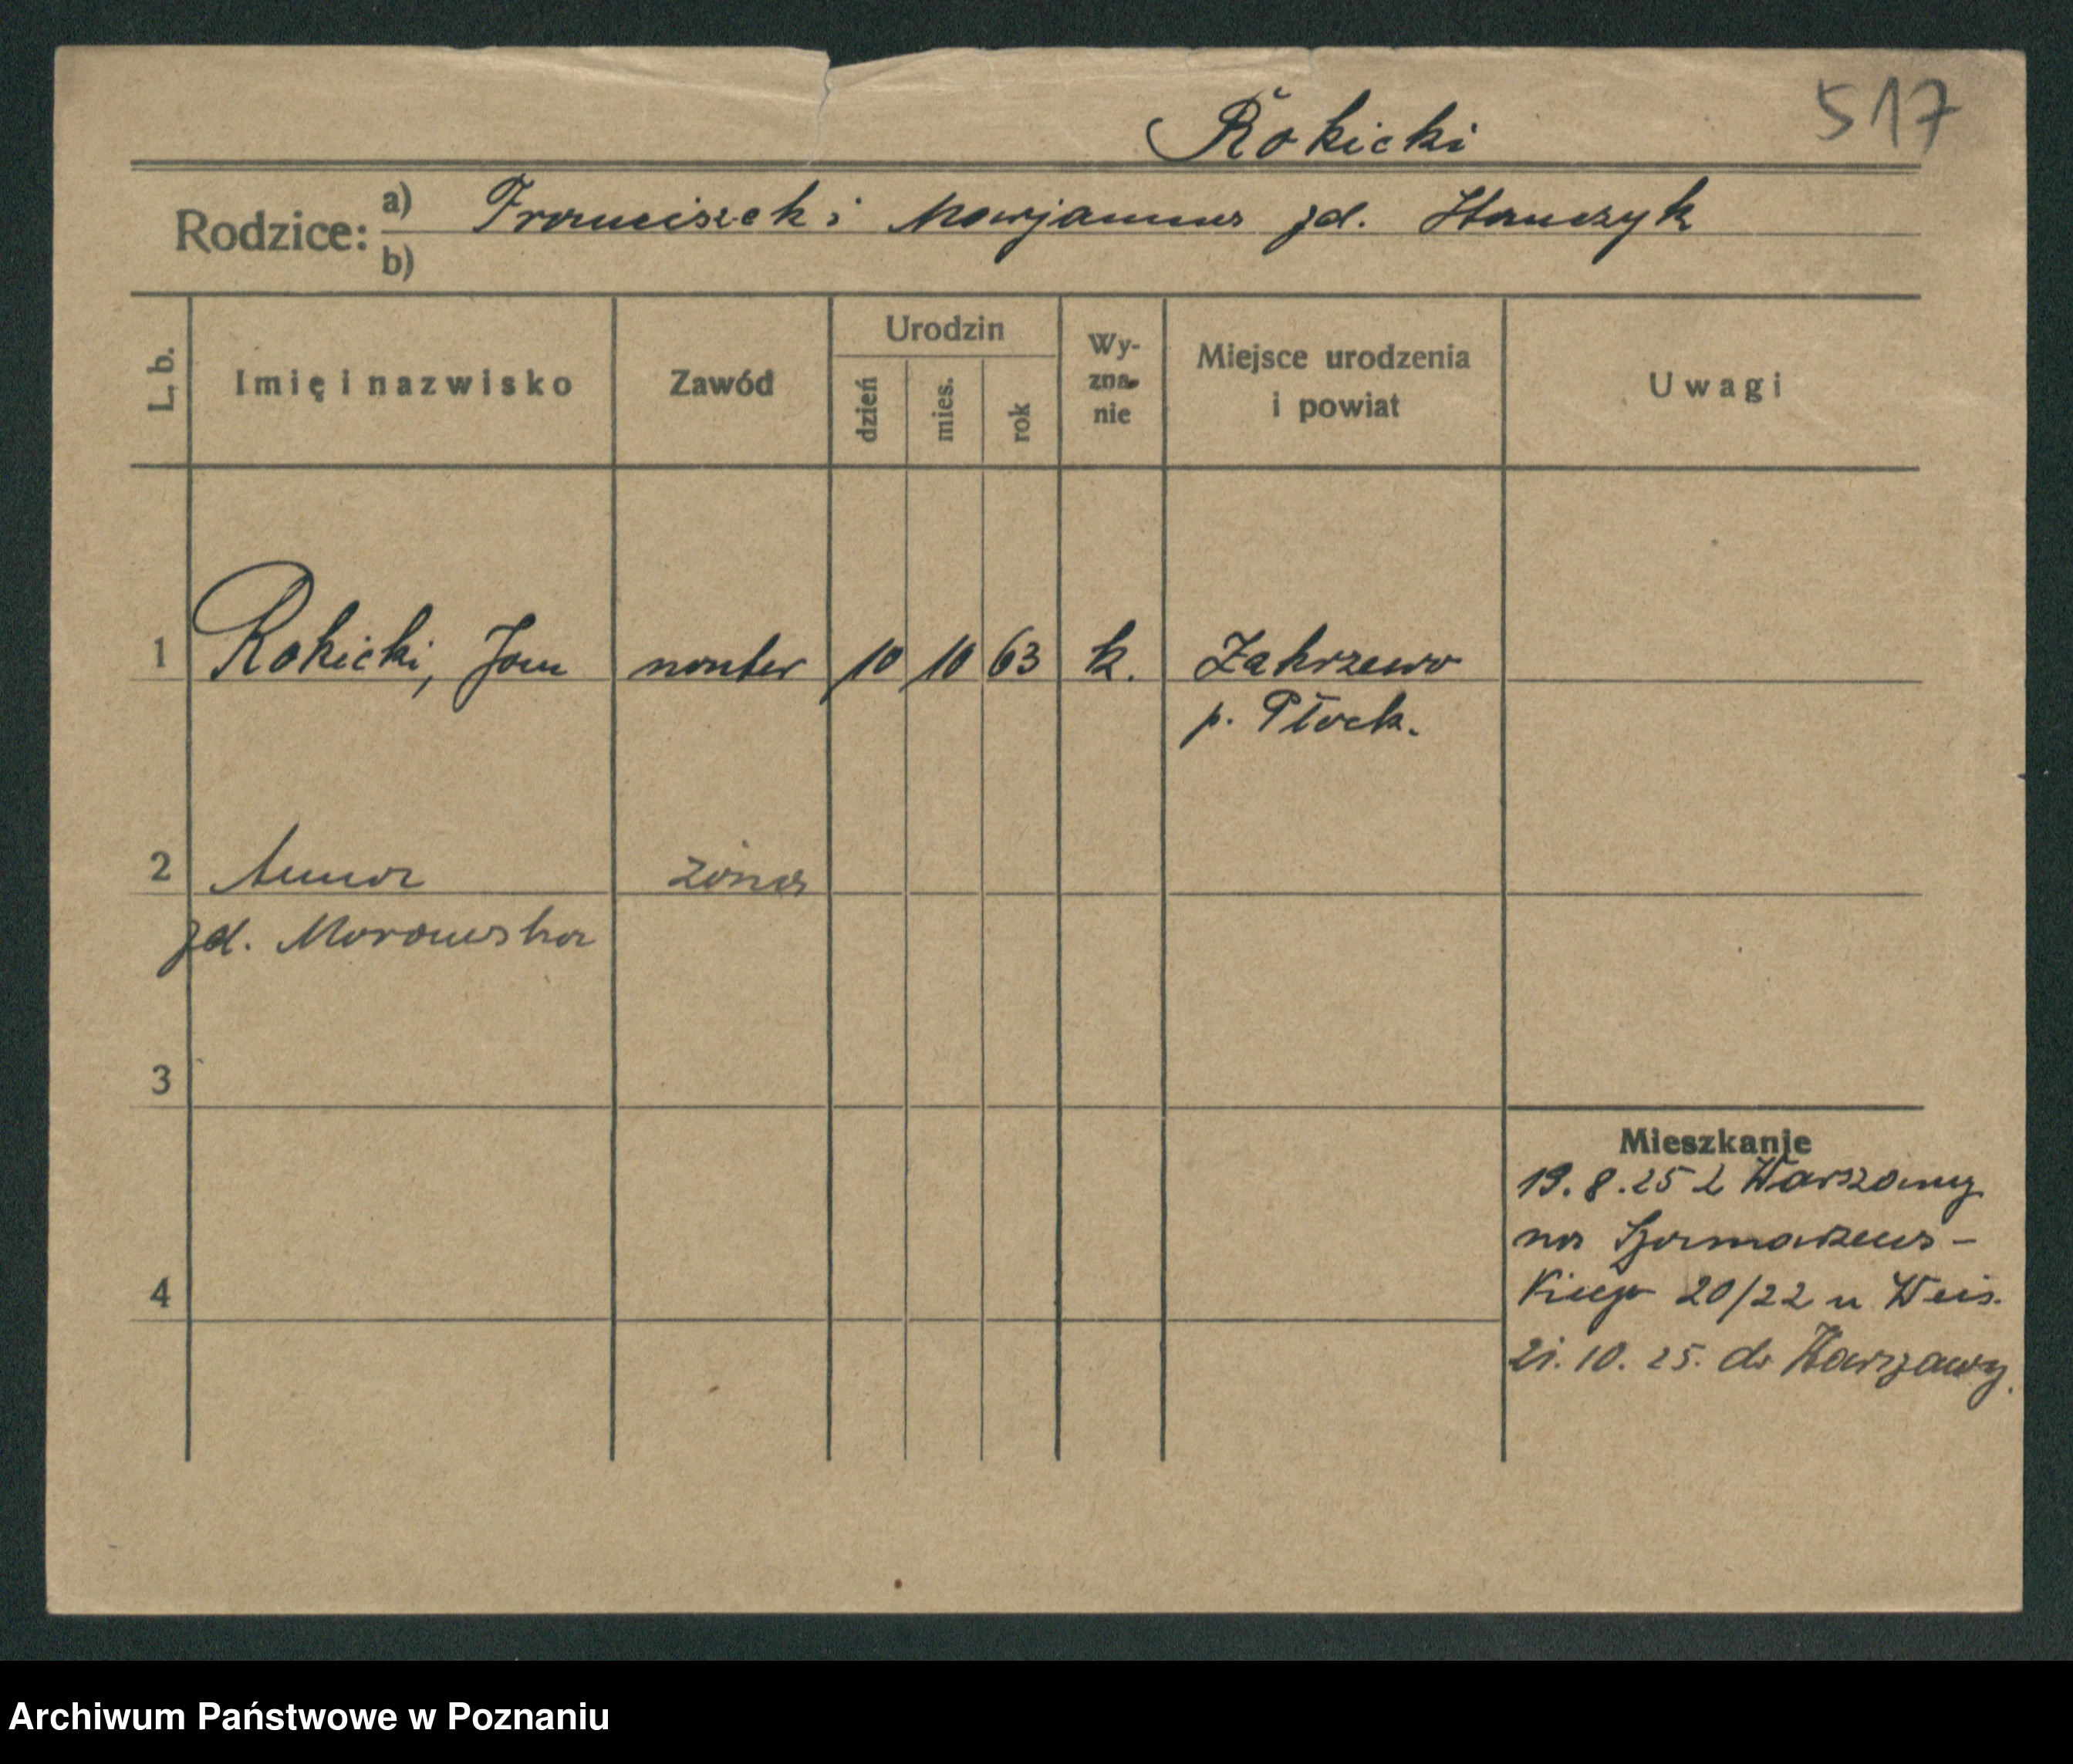 517
Rokicki
Rodzice: a) Franciszek i Marjanna zd. Stanczyk
b)
L. b. Imię i nazwisko Zawód Urodzin dzień mies. rok Wy-zna-nie Miejsce urodzenia i powiat Uwagi
1 Rokicki, Jan monter 10 10 63 k. Zakrzewo
p. Płock.
2 Anna żona
zd. Morawska
3
Mieszkanie
19.8.25 z Warszawy
na Szamarzews-
4
kiego 20/22 u Weis.
21.10.25. do Warszawy.
Archiwum Państwowe w Poznaniu